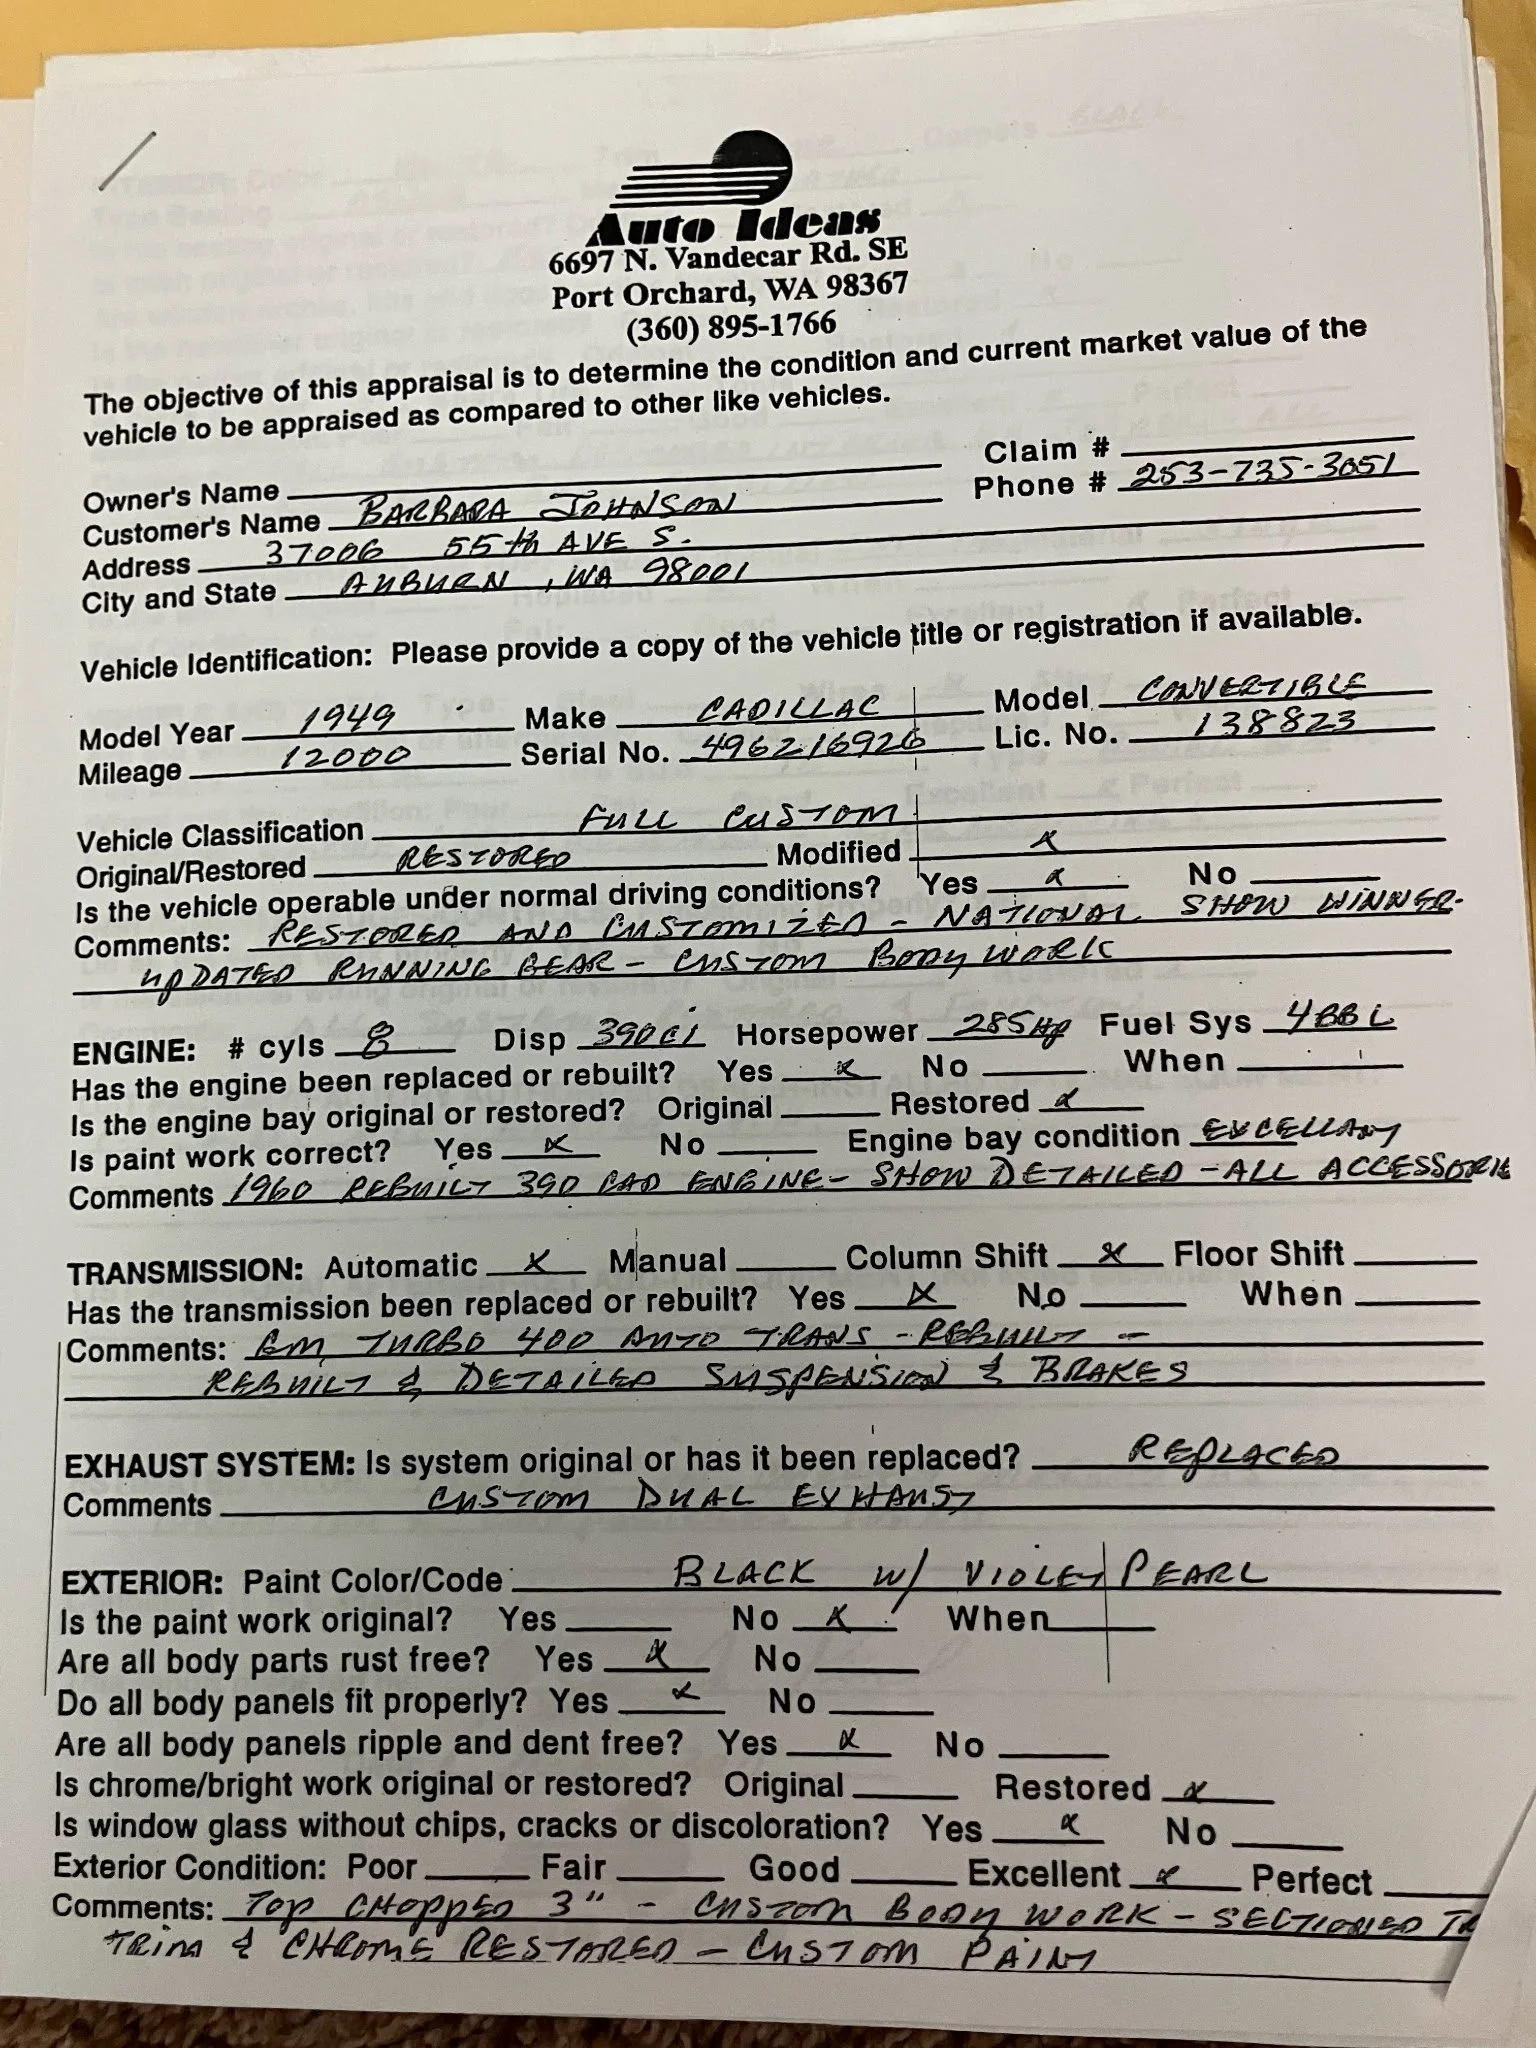 Auto Ideas
6697 N. Vandecar Rd. SE
Port Orchard, WA 98367
(360) 895-1766
The objective of this appraisal is to determine the condition and current market value of the
vehicle to be appraised as compared to other like vehicles.
Claim #
Owner's Name
Phone # 253-735-3051
Customer's Name BARBARA JOHNSON
Address 37006 55th AVE S.
City and State AUBURN, WA 98001
Vehicle Identification: Please provide a copy of the vehicle title or registration if available.
Model Year 1949 Make CADILLAC Model CONVERTIBLE
Mileage 12000 Serial No. 496216926 Lic. No. 138823
Vehicle Classification FULL CUSTOM
Original/Restored RESTORED Modified x
Is the vehicle operable under normal driving conditions? Yes x No
Comments: RESTORED AND CUSTOMIZED - NATIONAL SHOW WINNER-
UPDATED RUNNING GEAR - CUSTOM BODY WORK
ENGINE: # cyls 8 Disp 390CI Horsepower 285Hp Fuel Sys 4BBL
Has the engine been replaced or rebuilt? Yes x No When
Is the engine bay original or restored? Original Restored x
Is paint work correct? Yes x No Engine bay condition EXCELLANT
Comments 1960 REBUILT 390 CAD ENGINE - SHOW DETAILED - ALL ACCESSORIE
TRANSMISSION: Automatic x Manual Column Shift x Floor Shift
Has the transmission been replaced or rebuilt? Yes x No When
Comments: GM TURBO 400 AUTO TRANS - REBUILT -
REBUILT & DETAILED SUSPENSION & BRAKES
EXHAUST SYSTEM: Is system original or has it been replaced? REPLACED
Comments CUSTOM DUAL EXHAUST
EXTERIOR: Paint Color/Code BLACK W/ VIOLET PEARL
Is the paint work original? Yes No x When
Are all body parts rust free? Yes x No
Do all body panels fit properly? Yes x No
Are all body panels ripple and dent free? Yes x No
Is chrome/bright work original or restored? Original Restored x
Is window glass without chips, cracks or discoloration? Yes x No
Exterior Condition: Poor Fair Good Excellent x Perfect
Comments: TOP CHOPPED 3" - CUSTOM BODY WORK - SECTIONED
TRIM & CHROME RESTORED - CUSTOM PAINT